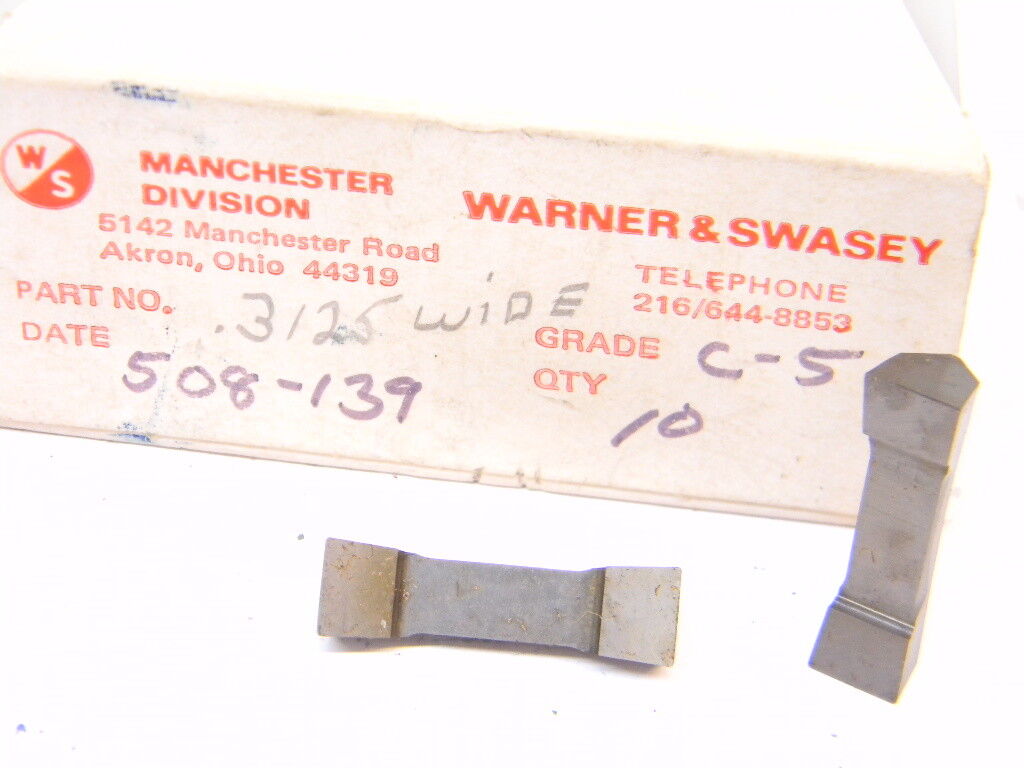 W/S
MANCHESTER DIVISION
5142 Manchester Road
Akron, Ohio 44319
WARNER & SWASEY
TELEPHONE
216/644-8853
PART NO. .3125 WIDE
GRADE C-5
DATE 508-139
QTY 10